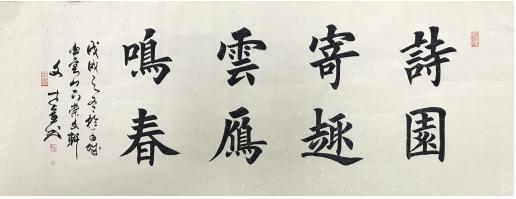 詩園
寄趣
雲鴈
鳴春
戊戌之冬於